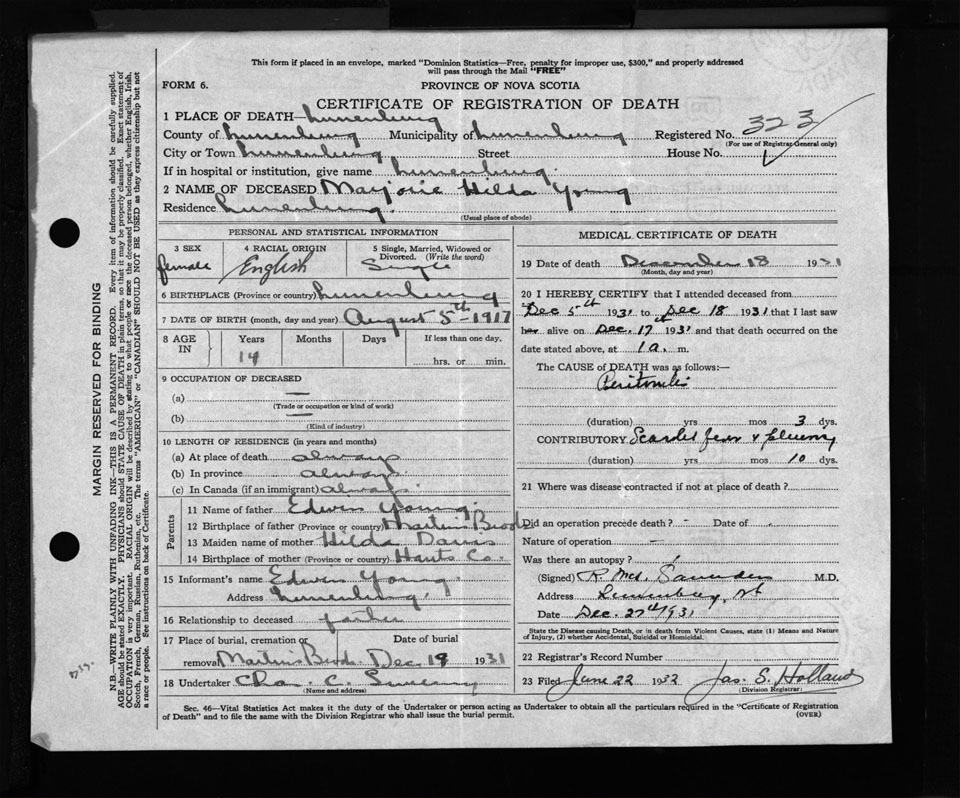 This form if placed in an envelope, marked "Dominion Statistics—Free, penalty for improper use, $300," and properly addressed
will pass through the Mail "FREE"
FORM 6.
PROVINCE OF NOVA SCOTIA
CERTIFICATE OF REGISTRATION OF DEATH
1 PLACE OF DEATH—Lunenburg
County of Lunenburg Municipality of Lunenburg Registered No. 323
(For use of Registrar-General only)
City or Town Lunenburg Street House No.
If in hospital or institution, give name Lunenburg.
2 NAME OF DECEASED Marjorie Hilda Young
Residence Lunenburg.
(Usual place of abode)
PERSONAL AND STATISTICAL INFORMATION
3 SEX
female
4 RACIAL ORIGIN
English
5 Single, Married, Widowed or
Divorced. (Write the word)
Single
6 BIRTHPLACE (Province or country) Lunenburg
7 DATE OF BIRTH (month, day and year) August 5th - 1917
8 AGE
IN
Years
14
Months
Days
If less than one day.
hrs. or min.
9 OCCUPATION OF DECEASED
(a) —
(Trade or occupation or kind of work)
(b) —
(Kind of industry)
10 LENGTH OF RESIDENCE (in years and months)
(a) At place of death always
(b) In province always
(c) In Canada (if an immigrant) always
Parents
11 Name of father Edwin Young
12 Birthplace of father (Province or country) Martins Brook
13 Maiden name of mother Hilda Davis
14 Birthplace of mother (Province or country) Hants Co.
15 Informant's name Edwin Young
Address Lunenburg
16 Relationship to deceased father
17 Place of burial, cremation or
removal Martins Brook
Date of burial
Dec 19 1931
18 Undertaker Chas. C. Sweeny
(Name and address)
MEDICAL CERTIFICATE OF DEATH
19 Date of death December 18 1931
(Month, day and year)
20 I HEREBY CERTIFY that I attended deceased from
Dec 5th 1931 to Dec 18 1931 that I last saw
her alive on Dec. 17th 1931 and that death occurred on the
date stated above, at 1 a. m.
The CAUSE of DEATH was as follows:—
Peritonitis
(duration) yrs mos 3 dys.
CONTRIBUTORY Scarlet fever & pleurisy
(duration) yrs mos 10 dys.
21 Where was disease contracted if not at place of death?
Did an operation precede death? - Date of
Nature of operation —
Was there an autopsy?
(Signed) R. McK. Saunders M.D.
Address Lunenburg, NS
Date Dec. 27th/931
State the Disease causing Death, or in death from Violent Causes, state (1) Means and Nature
of Injury, (2) whether Accidental, Suicidal or Homicidal.
22 Registrar's Record Number
23 Filed June 22 1932 Jas. S. Holland
(Division Registrar)
Sec. 46—Vital Statistics Act makes it the duty of the Undertaker or person acting as Undertaker to obtain all the particulars required in the "Certificate of Registration
of Death" and to file the same with the Division Registrar who shall issue the burial permit.
(OVER)
MARGIN RESERVED FOR BINDING
N.B.—WRITE PLAINLY WITH UNFADING INK—THIS IS A PERMANENT RECORD. Every item of information should be carefully supplied.
AGE should be stated EXACTLY. PHYSICIANS should STATE CAUSE OF DEATH in plain terms, so that it may be properly classified. Exact statement of
OCCUPATION is very important. RACIAL ORIGIN will be described by stating to what people or race the deceased person belonged, whether English, Irish,
Scotch, French, German, Russian, Ruthenian, etc. The terms "AMERICAN" or "CANADIAN" SHOULD NOT BE USED as they express citizenship but not
a race or people. See instructions on back of Certificate.